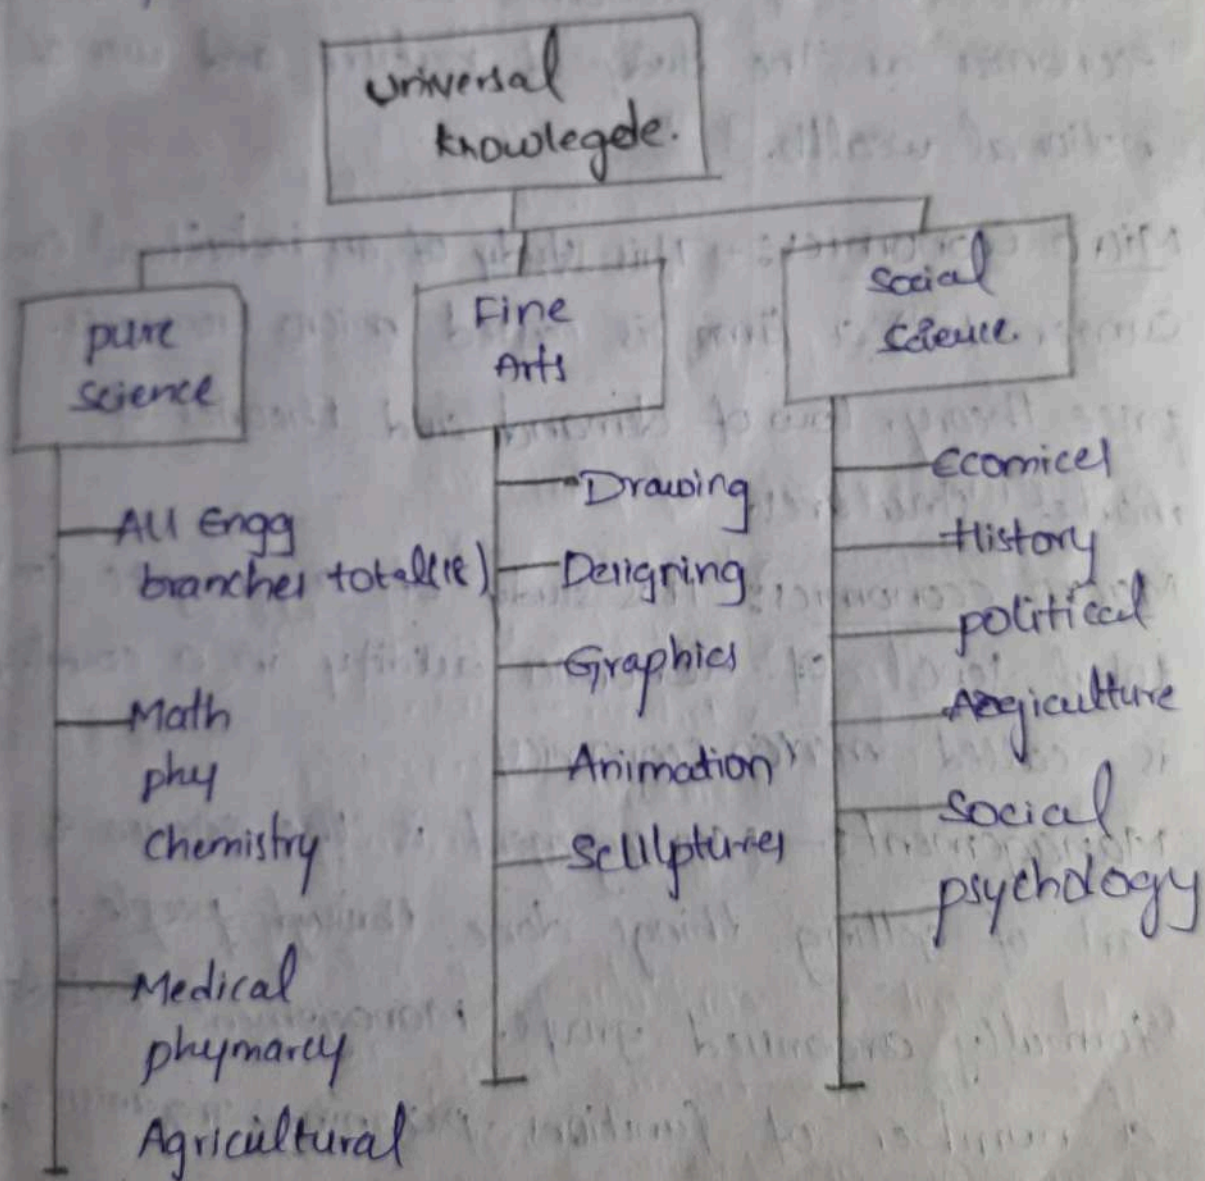 Universal
knowlegede.
pure
science
Fine
Arts
Social
Science.
All Engg
branches total(18)
Math
phy
chemistry
Medical
phymarcy
Agricultural
Drawing
Designing
Graphics
Animation
Sculptures
Ecomices
History
political
Aegiculture
Social
psychology